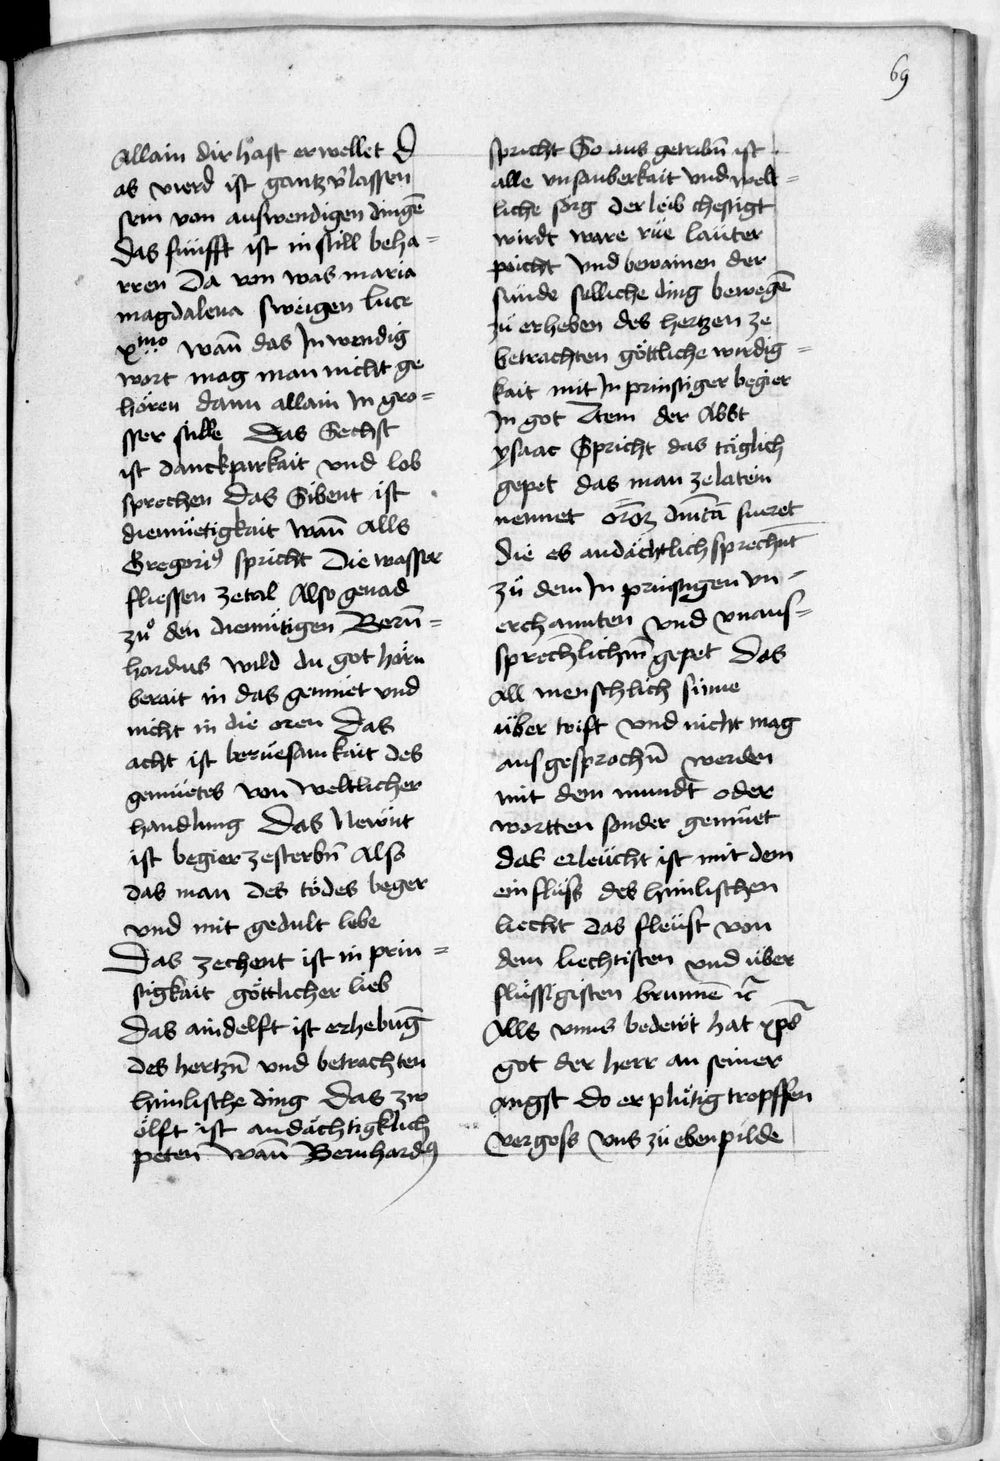 69
Allain dir hast erwellet D
as vierd ist gantz v̄lassen
sein von auswendigen dingē
Das fünfft ist in still beha=
rren Da von was maria
magdalena sweigen luce
xmo wan̄ das Inwendig
wort mag man nicht ge
hören dann allain In gro=
sser stille Das Sechst
ist danckparkait vnd lob
sprechen Das Sibent ist
diemüetigkait wan̄ Alls
Gregori9 spricht Die wasser
fliessen ze tal Also genad
zů den diemütigen Bern̄=
hardus wild du got hörn
berait in das gemüet vnd
nicht in die oren Das
acht ist berüesamkait des
gemüetes von weltlicher
handlung Das Newnt
ist begier ze sterbn̄ Also
das man des tödes beger
vnd mit gedult lebe
Das zechent ist in prin=
stigkait göttlicher lieb
Das aindelft ist erhebūg
des hertzn̄ vnd betrachten
himlische ding Das zw
ölft ist andächtigklich
peten wan̄ Bernhard9
spricht So aus getribn̄ ist
alle vnsauberkait vnd welt=
liche sorg der leib chestigt
wirdt ware rüe lauter
peicht vnd bewainen der
sünde selliche ding bewegē
zü erheben des hertzen ze
betrachten göttliche wirdig=
kait mit In prinstiger begier
In got Item der Abbt
ysaac Spricht das täglich
gepet das man ze latein
nennet or̄oꝝ dn̄icā fueret
die es andächtlich sprechn̄t
zü dem In prinstigen vn=
erchannten vnd vnaus=
sprechlichn̄ gepet Das
All menschlich sinne
über trift vnd nicht mag
aus gesprochn̄ werden
mit dem mundt oder
wortten sonder gemüet
das erleücht ist mit dem
einflüss des himlischen
liecht das fleüst von
dem liechtisten vnd über
flüssigisten brunnē ꝛc̄
Alls vnns bedewt hat xp̄s
got der herr an seiner
angst do er plütig tropffen
vergoss vns zü ebenpilde